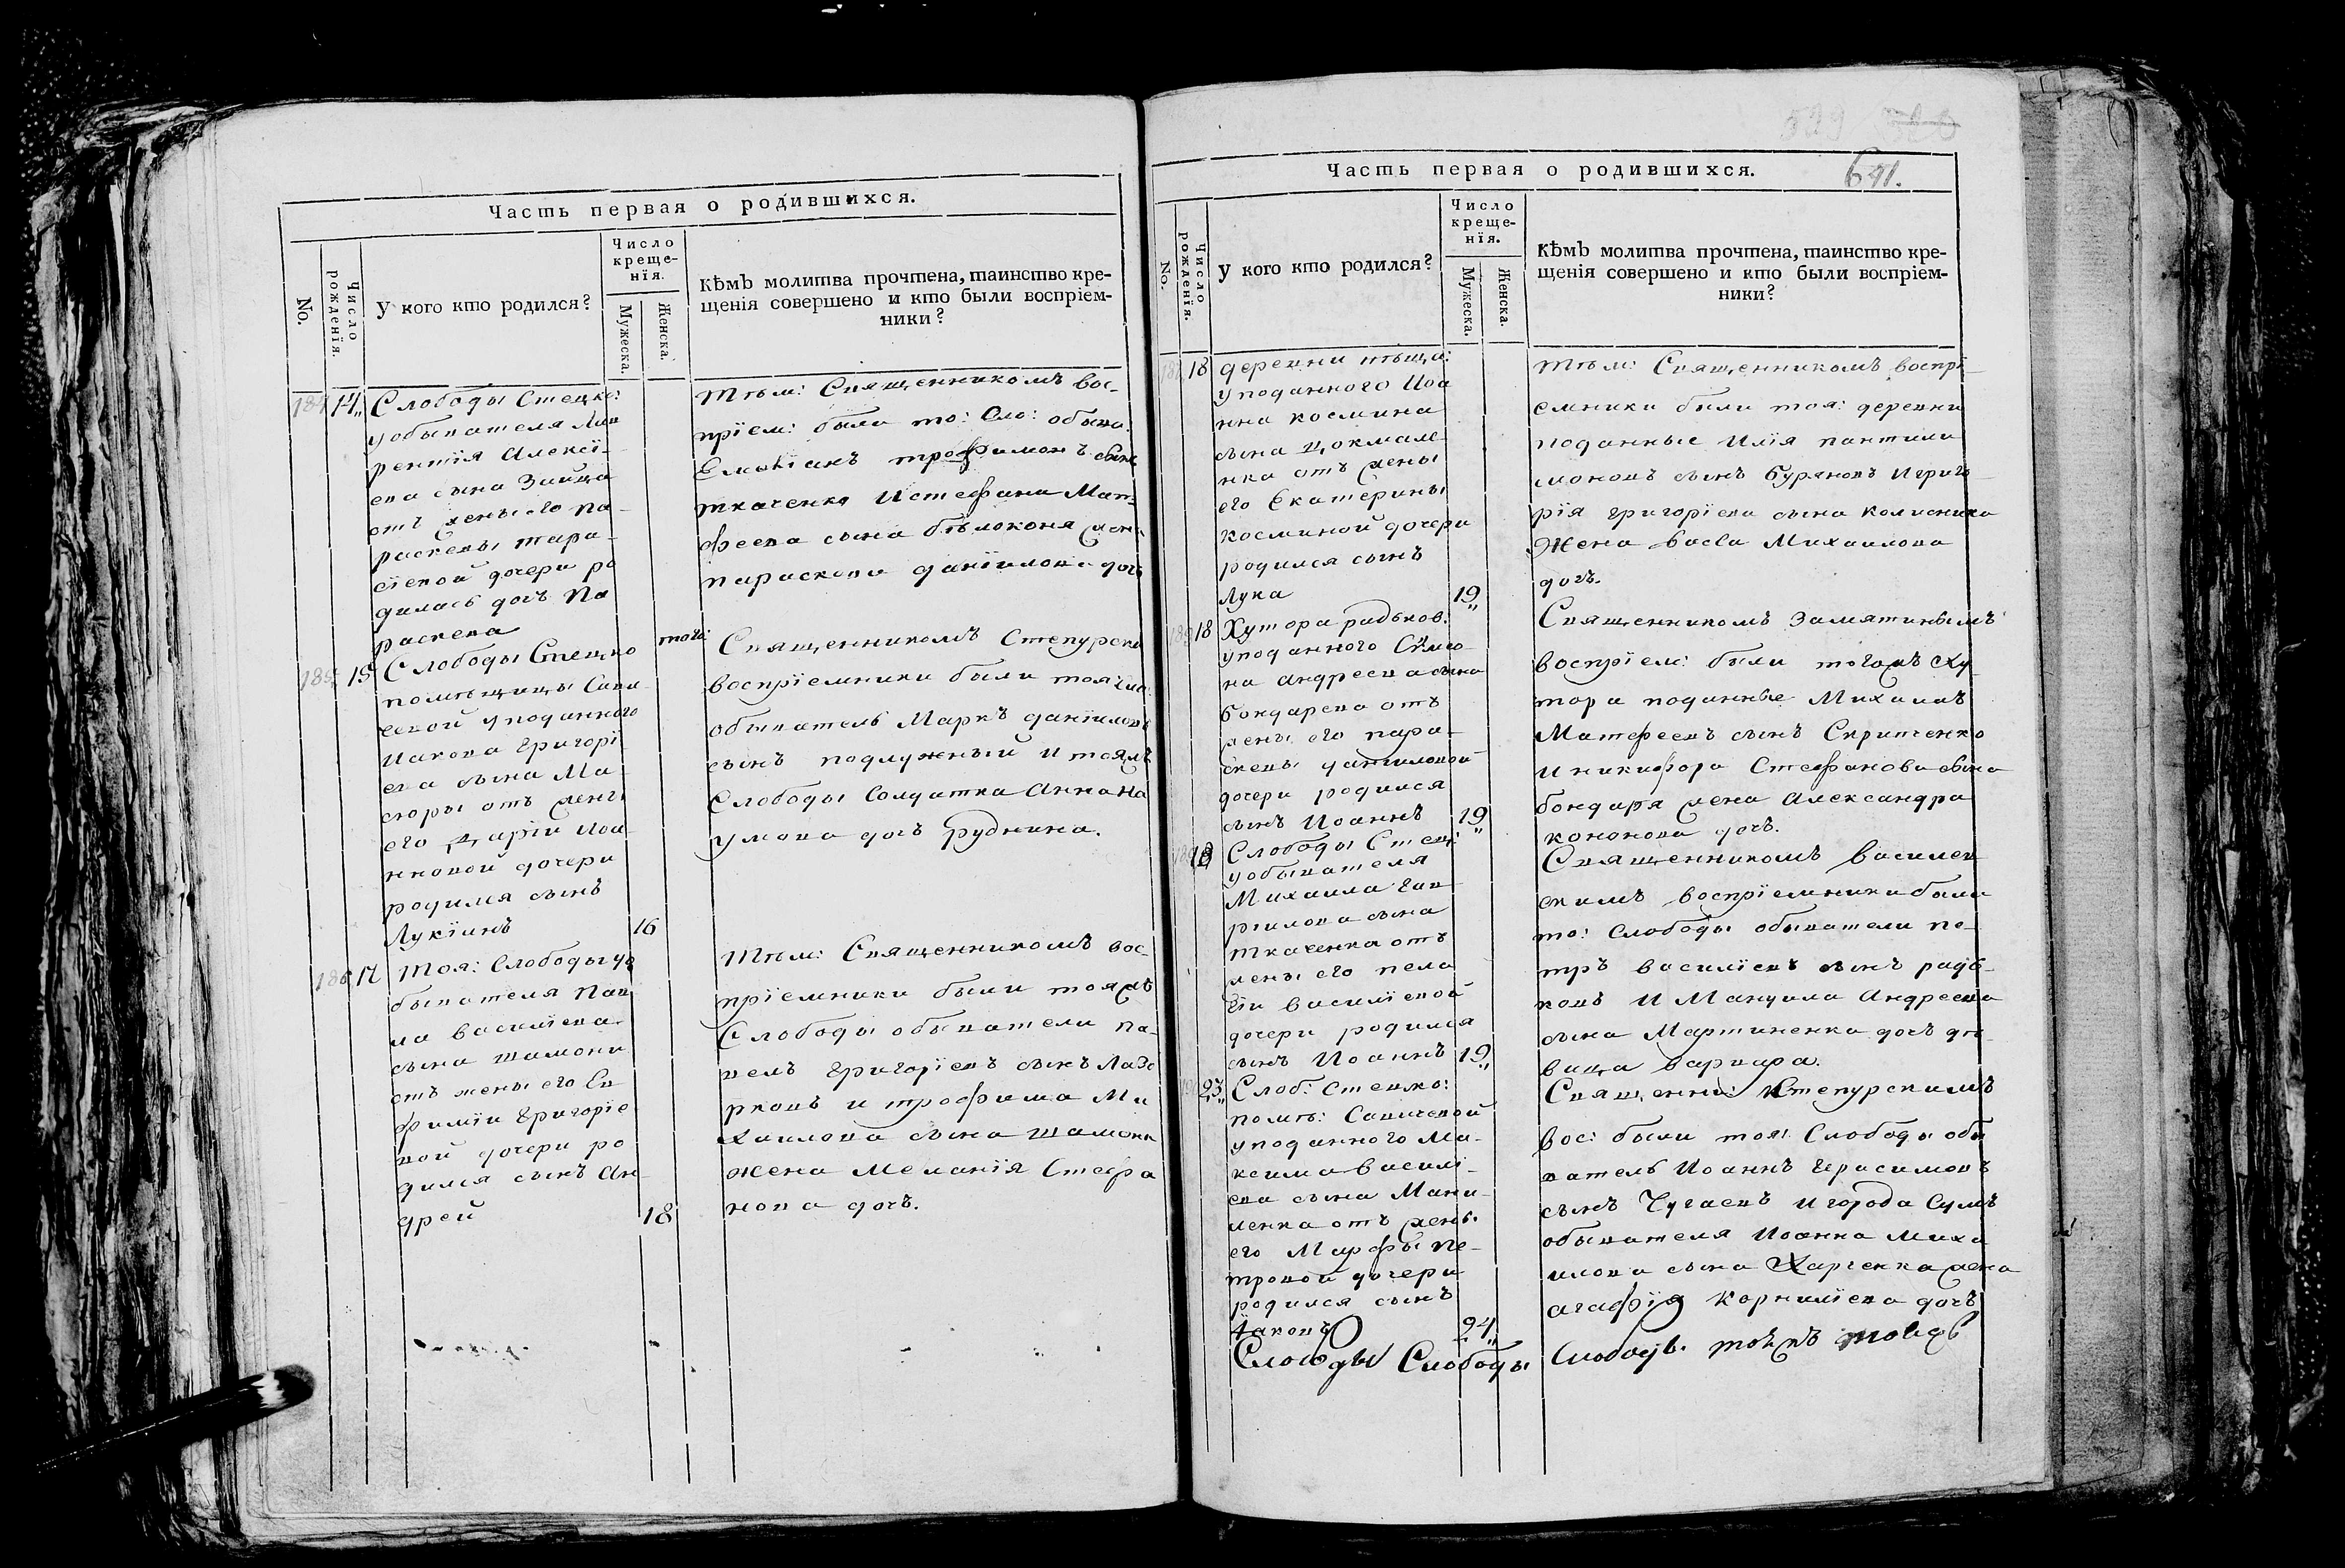 Часть первая о родившихся.
No.
Число рожденїя.
У кого кто родился?
Число
креще-
нїя.
Мужеска.
Женска.
Кѣмъ молитва прочтена, таинство кре-
щенія совершено и кто были воспріем-
ники?
184 14 Слободы Стецко:
у обывателя Лав
рентїя Алексї-
ева сына Зайца
отъ жены его Па-
раскевы тара-
сїевой дочери ро
дилась дочъ Па
раскева
тогожъ
Тѣм: Священникомъ вос-
прїем: были то: Сло: обыва:
Емелїанъ трофимовъ сынъ
ткаченко И стефана Мат-
феева сына бѣлоконя жен:
параскева данїилова дочъ
15 Слободы Стецко
помѣщицы Сави
чевой у поданного
Иакова Григорї
ева сына Ма-
сюры отъ жены
его Дарїи Иоа-
нновой дочери
родился сынъ
Лукїянъ 16
Священникомъ Степурски
воспрїемники были тоя Сло:
обыватель Маркъ данїиловъ
сынъ подлужный И тояжъ
Слободы Солдатка Анна На
умова дочъ руднина.
186 17 Тоя: Слободы у о
бывателя Пав
ла василїева
сына шамони
отъ жены его Ев
фимїи Григорїе
вой дочери ро
дился сынъ Ан-
дрей 18
Тѣм: Священникомъ вос-
прїемники были тояжъ
Слободы обыватели па-
велъ Григорїевъ сынъ Лазо
рковъ и трофима Ми
хаилова сына шамони
жена Меланїя Стефа
нова дочъ.
529
Часть первая о родившихся. 641.
No.
Число рожденїя.
У кого кто родился?
Число
креще-
нїя.
Мужеска.
Женска.
Кѣмъ молитва прочтена, таинство кре-
щенія совершено и кто были воспріем-
ники?
18 деревни пѣщи:
у поданного Иоа
нна космина
сына Докмале
нка отъ жены
его Екатерины
косминой дочери
родился сынъ
Лука 19
Тѣм: Священникомъ воспрї
емники были тоя: деревни
поданные Илїя пантили
моновъ сынъ буряновъ И григо
рїя григорїева сына колисника
Жена васса Михаилова
дочъ.
18 Хутора радьков:
у поданного Симо-
на андреева сына
бондарева отъ
жены его пара-
скевы данїиловой
дочери родился
сынъ Иоаннъ 19
Священникомъ Замятинымъ
воспрїем: были тогожъ Ху
тора поданные Михаилъ
Матфеевъ сынъ Скрипченко
и никифора Стефанова сына
бондаря жена Александра
кононова дочъ.
18 Слободы Стец:
у обывателя
Михаила Гав
рїилова сына
ткаченка отъ
жены его пела
гїи василїевой
дочери родился
сынъ Иоаннъ 19
Священникомъ василев
скимъ воспрїемники были
то: Слободы обыватели пе-
тръ василїевъ сынъ радь-
ковъ И Мануила Андреева
сына Мартиненка дочъ дѣ-
вица варвара.
23 Слоб: Стецко:
помѣ: Савичевой
у поданного Ма-
ксима василї-
ева сына Мани-
ленка отъ жены
его Марфы Пе-
тровой дочери
родился сынъ
Їаковъ 24
Священни: Степурскимъ
вос: были тоя: Слободы обы
ватель Иоаннъ Герасимовъ
сынъ Чугаевъ и города Сумъ
обывателя Иоанна миха
илова сына Харченка жена
агафїя корнилїева дочъ
Слободы Слободы Слободы тояжъ